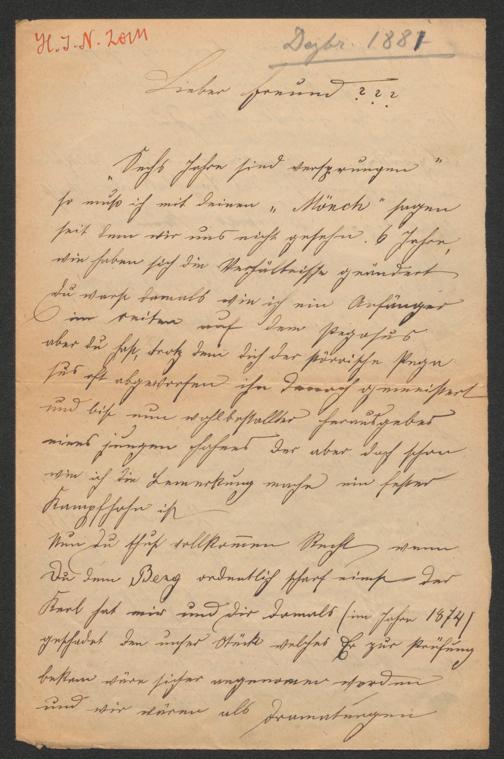 H. I. N. 20111
Dezbr. 1881
Lieber Freund ???
„Sechs Jahre sind versprungen"
so muß ich mit deinen „Mönch" sagen
seit dem wir uns nicht gesehn. 6 Jahre,
wie haben sich die Verhältnisse geändert
Du warst damals wie ich ein Anfänger
im reiten auf dem Pegasus
aber du hast, trotz dem dich der störrische Pega
sus oft abgeworfen ihn danach gemeistert
und bist nun wohlbestallter Herausgeber
eines jungen Hahnes der aber doch schon
wie ich die Bemerkung mache ein fester
Kampfhahn ist
Nun du thust vollkom̅en Recht wenn
Du dem Berg ordentlich scharf
Kerl hat mir und dir damals (im Jahre 1874)
geschadet den unser Stück welches Er zur Prüfung
bekam wäre sicher angenommen worden
und wir wären als Dramaturgen